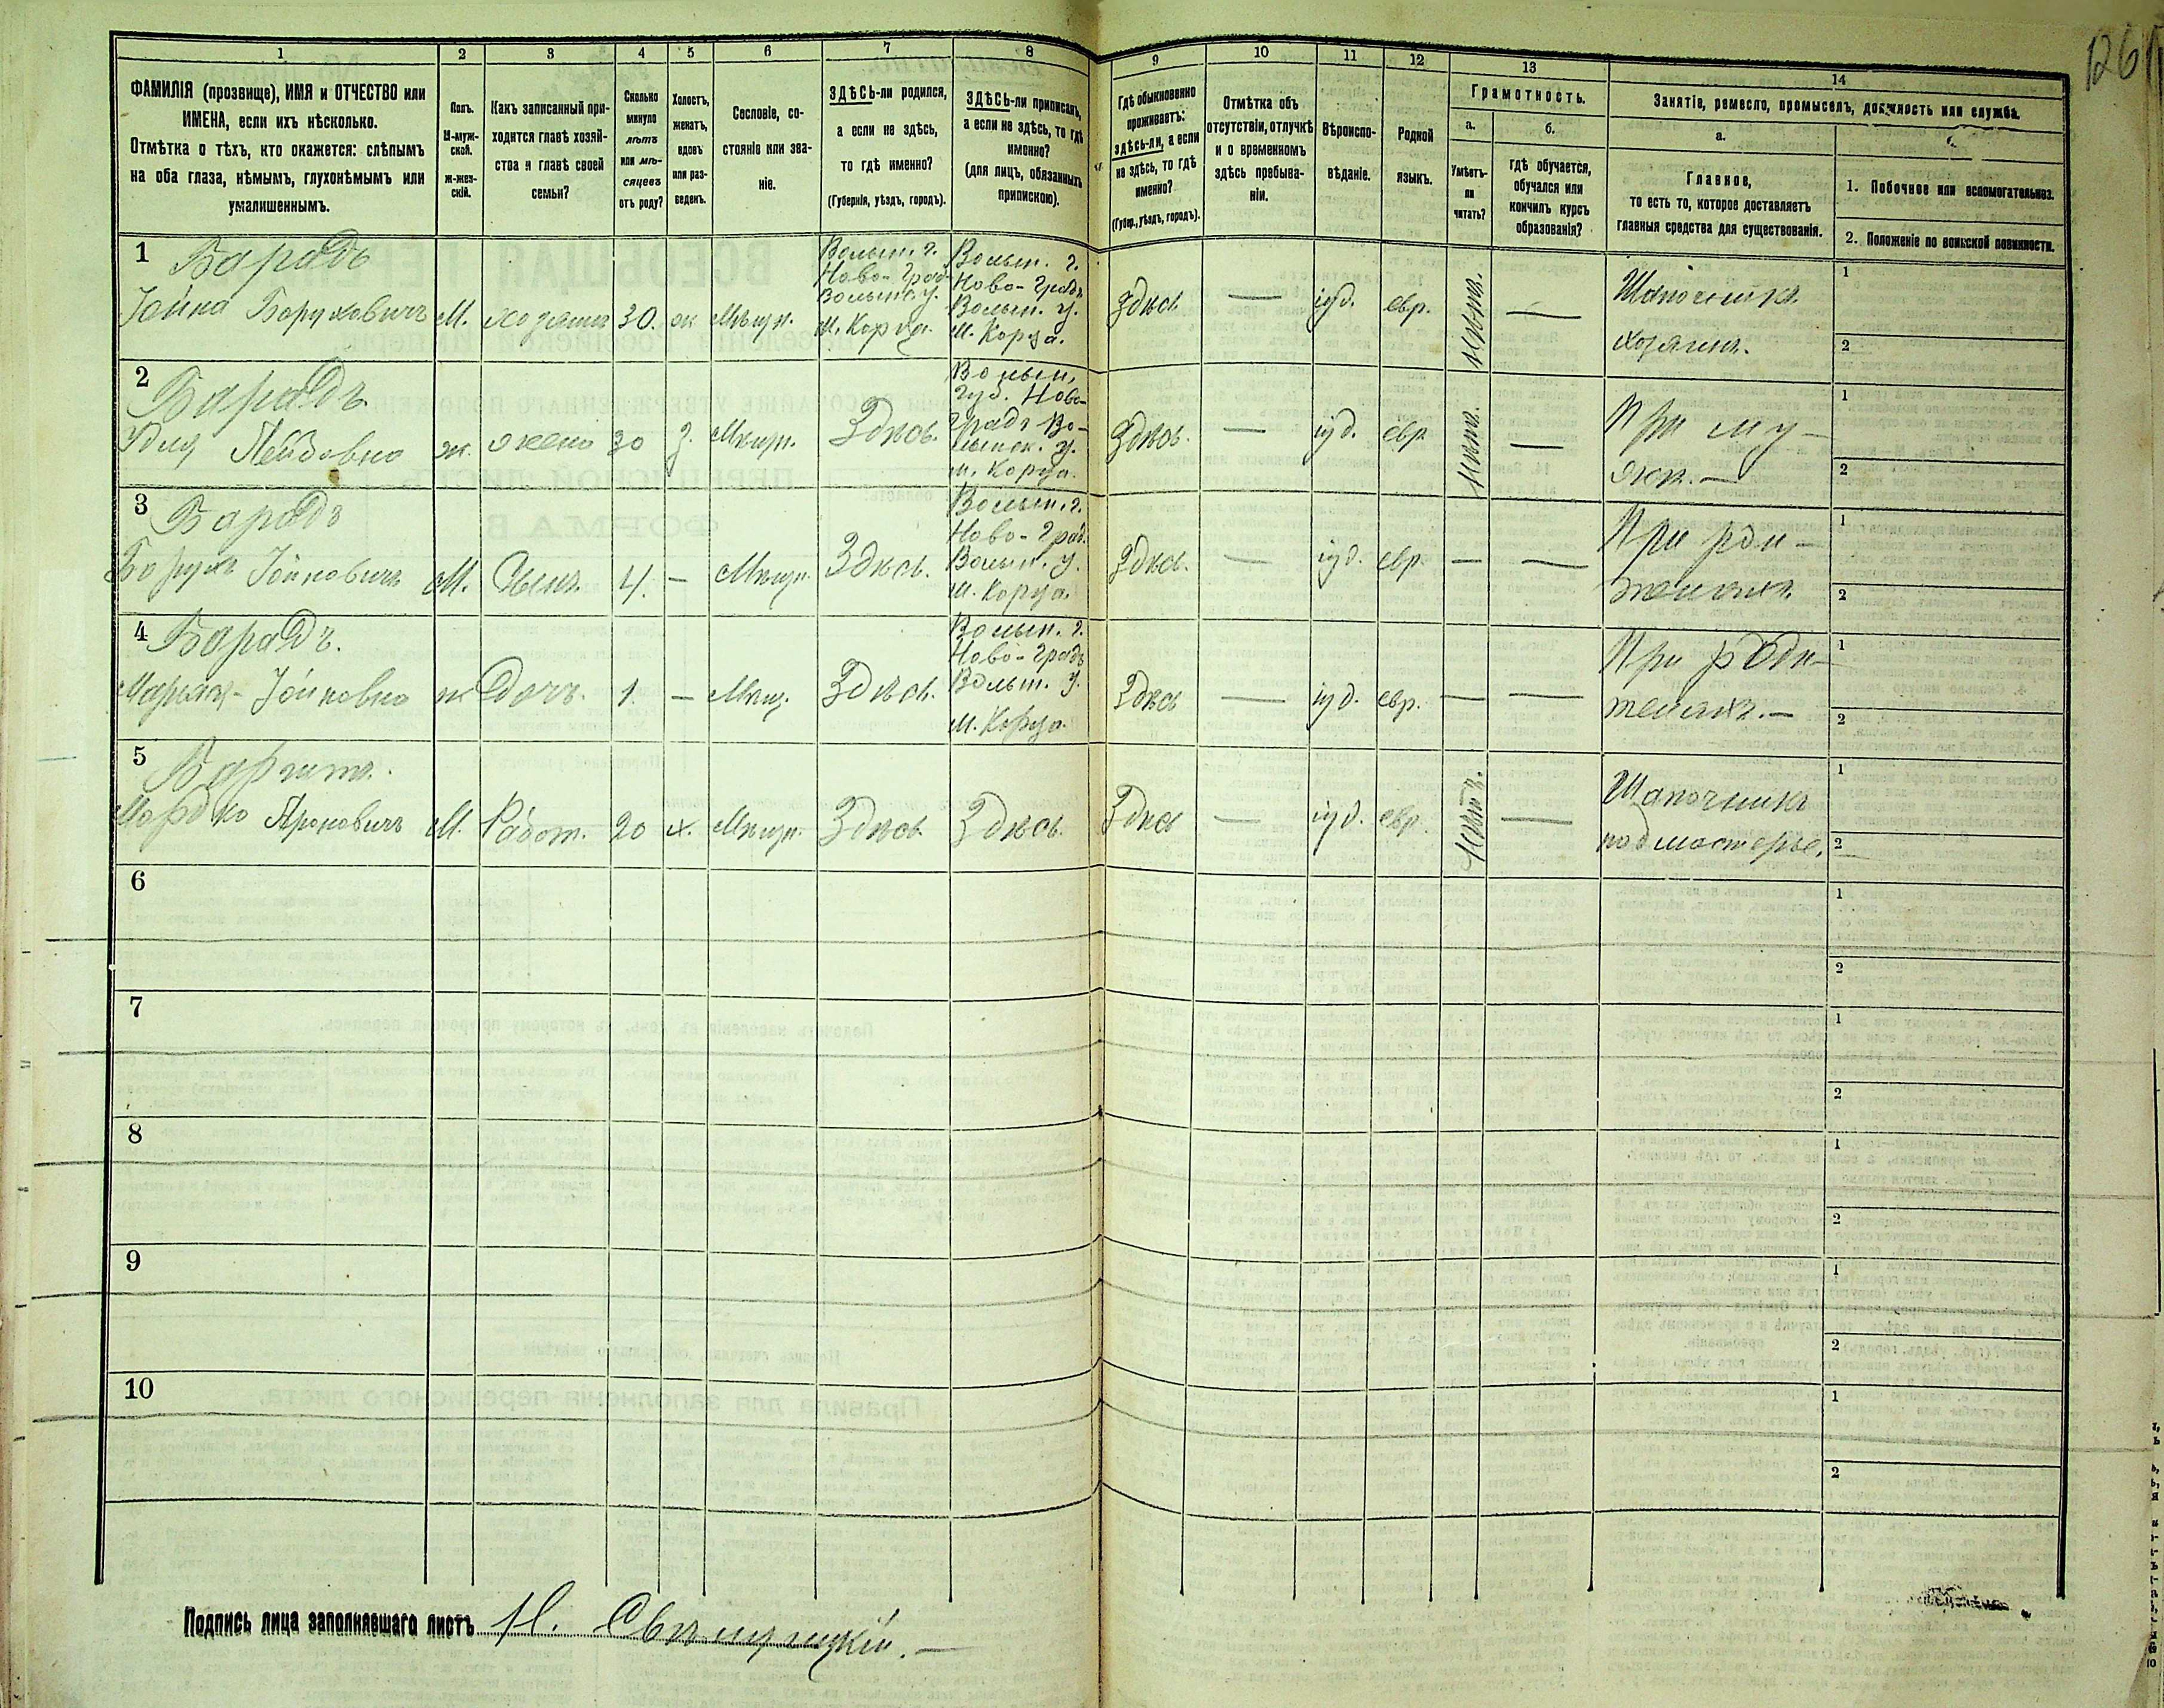 126
1 2 3 4 5 6 7 8 9 10 11 12 13 14
ФАМИЛІЯ (прозвище), ИМЯ и ОТЧЕСТВО или
ИМЕНА, если ихъ нѣсколько.
Отмѣтка о тѣхъ, кто окажется: слѣпымъ
на оба глаза, нѣмымъ, глухонѣмымъ или
умалишеннымъ.
Полъ.
М-муж-
ской.
ж-жен-
скій.
Какъ записанный при-
ходится главѣ хозяй-
ства и главѣ своей
семьи?
Сколько
минуло
лѣтъ
или мѣ-
сяцевъ
отъ роду?
Холостъ,
женатъ,
вдовъ
или раз-
веденъ.
Сословіе, со-
стояніе или зва-
ніе.
ЗДѢСЬ-ли родился,
а если не здѣсь,
то гдѣ именно?
(Губернія, уѣздъ, городъ).
ЗДѢСЬ-ли приписанъ,
а если не здѣсь, то гдѣ
именно?
(для лицъ, обязанныхъ
припискою).
Гдѣ обыкновенно
проживаетъ:
здѣсь-ли, а если
не здѣсь, то гдѣ
именно?
(Губер., уѣздъ, городъ).
Отмѣтка объ
отсутствіи, отлучкѣ
и о временномъ
здѣсь пребыва-
ніи.
Вѣроиспо-
вѣданіе.
Родной
языкъ.
Грамотность.
а.
Умѣетъ-
ли
читать?
б.
гдѣ обучается,
обучался или
кончилъ курсъ
образованія?
Занятіе, ремесло, промыселъ, должность или служба.
а.
Главное,
то есть то, которое доставляетъ
главныя средства для существованія.
1. Побочное или вспомогательное.
2. Положеніе по воинской повинности.
1
Барадъ
Іойна Боруховичъ
М.
хозяинъ
30.
ж
Мѣщн.
Волын. г.
Ново-Град
Волынс. у.
м. Корца.
Волын. г.
Ново-Градъ
Волын. у.
м. Корца.
Здѣсь
—
іуд.
евр.
—
Шапочникъ
хозяинъ.
1
2
2
Барадъ.
Лейбовна
ж.
жена
30
з.
Мѣщн.
Здѣсь.
Волын.
губ. Ново-
градъ Во-
лынск. у.
м. Корца.
Здѣсь.
—
іуд.
евр
—
При му-
жѣ.—
1
2
3
Барадъ
Борухъ Іойновичъ
М.
Сынъ.
4.
—
Мѣщн.
Здѣсь.
Волын. г.
Ново-град.
Волын. у.
м. Корца.
Здѣсь.
—
іуд.
евр
—
—
При роди-
теляхъ.
1
2
4
Барадъ.
Іойновна
ж
Дочь.
1.
—
Мѣщ.
Здѣсь.
Волын. г.
Ново-градъ
Волын. у.
м. Корца.
Здѣсь
—
іуд.
евр.
—
—
При роди-
теляхъ.—
1
2
5
Мордко Ароновичъ
М.
Работ.
20
х.
Мѣщн.
Здѣсь.
Здѣсь.
Здѣсь
—
іуд.
евр.
—
Шапочникъ
подмастерье.
1
2
6
1
2
7
1
2
8
1
2
9
1
2
10
1
2
Подпись лица заполнявшаго листъ